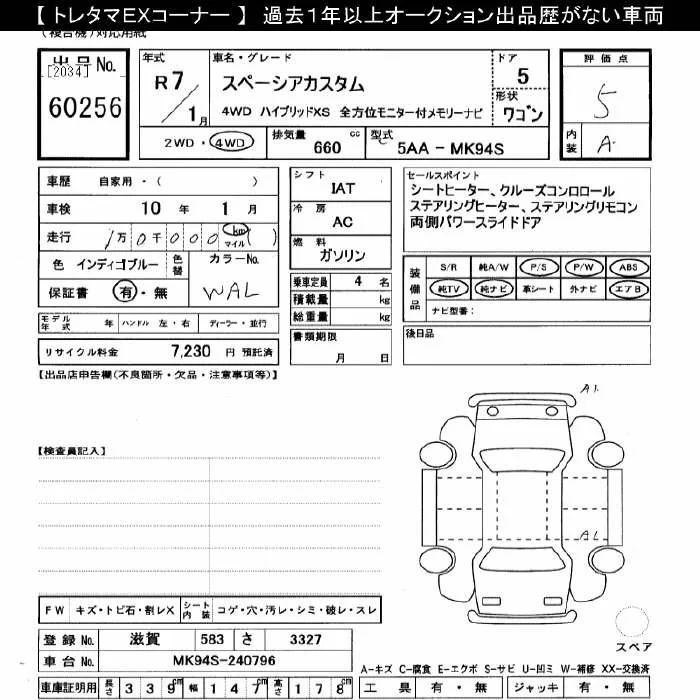 【 トレタマEXコーナー 】 過去1年以上オークション出品歴がない車両
(複合機)対応用紙
出品No.
[2034]
60256
年式
R7/1月
車名・グレード
スペーシアカスタム
4WD ハイブリッドXS 全方位モニター付メモリーナビ
ドア
5
形状
ワゴン
2WD・4WD
排気量 660 cc
型式 5AA - MK94S
評価点
5
内装 A
車歴 自家用 - ( )
車検 10 年 1 月
走行 1万0千000 km マイル ( )
色 インディゴブルー
色替
カラーNo.
WAL
保証書 有・無
モデル年式 年 ハンドル 左・右 ディーラー・並行
リサイクル料金 7,230 円 預託済
シフト
IAT
冷房
AC
燃料
ガソリン
乗車定員 4 名
積載量 kg
総重量 kg
書類期限
月 日
セールスポイント
シートヒーター、クルーズコンロロール
ステアリングヒーター、ステアリングリモコン
両側パワースライドドア
装備品
S/R 純A/W P/S P/W ABS
純TV 純ナビ 革シート 外ナビ エアB
ナビ型番:
後日品
【出品店申告欄(不良箇所・欠品・注意事項等)】
【検査員記入】
A1
A1
FW キズ・トビ石・割レX シート内装 コゲ・穴・汚レ・シミ・破レ・スレ
登録No. 滋賀 583 さ 3327
車台No. MK94S-240796
車庫証明用 長さ 339cm 幅 147cm 高さ 178cm
スペア
A-キズ C-腐食 E-エクボ S-サビ U-凹ミ W-補修 XX-交換済
工具 有・無 ジャッキ 有・無